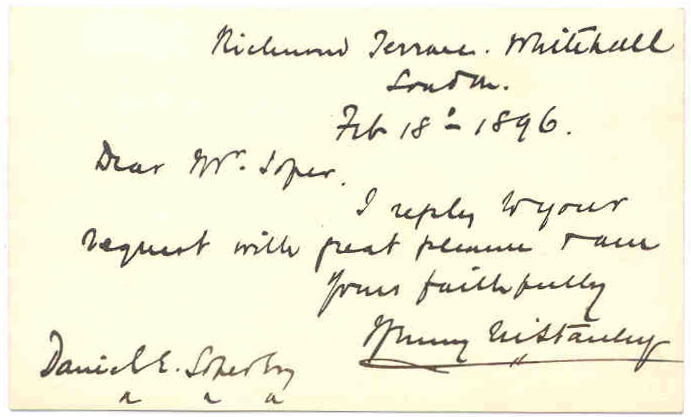 Richmond Terrace. Whitehall
London.
Feb 18th 1896.
Dear Mr. Soper.
I reply to your
request with great pleasure & am
Yours faithfully
Henry M Stanley
Daniel E. Soper
" " "